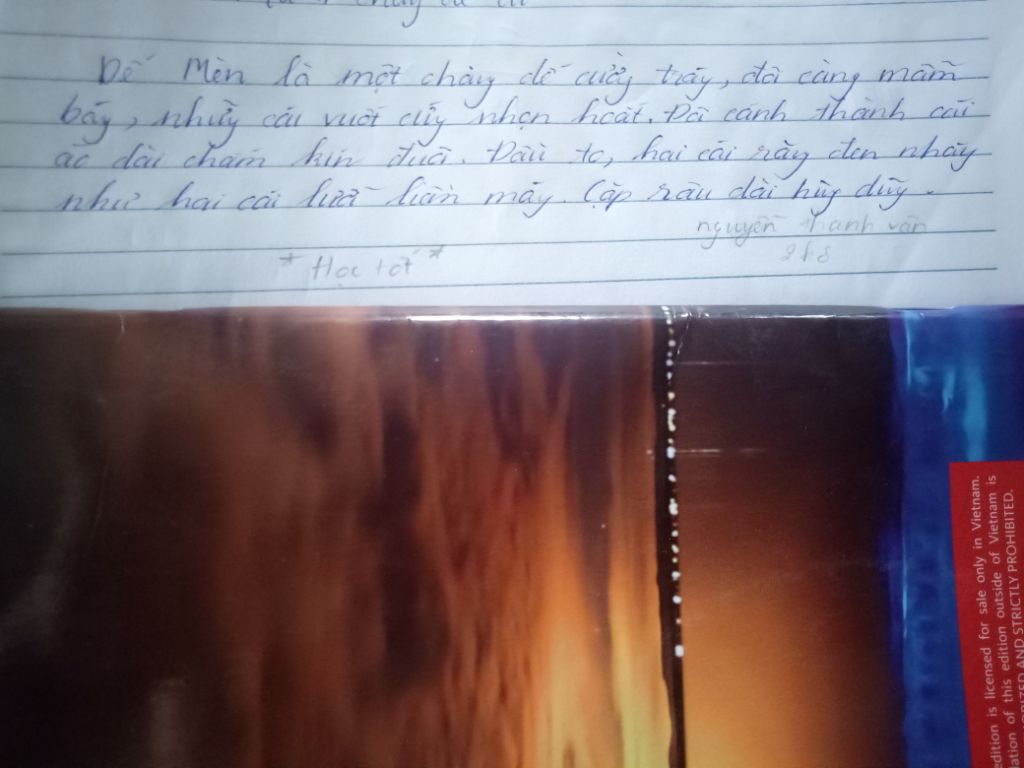 Dế Mèn là một chàng dế cường tráng, đôi càng mẫm
bóng, những cái vuốt cứng nhọn hoắt. Đôi cánh thành cái
áo dài chấm kín đuôi. Đầu to, hai cái răng đen nhánh
như hai cái lưỡi liềm máy. Cặp râu dài hùng dũng.
nguyễn thanh vân
* Học tốt *
edition is licensed for sale only in Vietnam.
lation of this edition outside of Vietnam is
AND STRICTLY PROHIBITED.